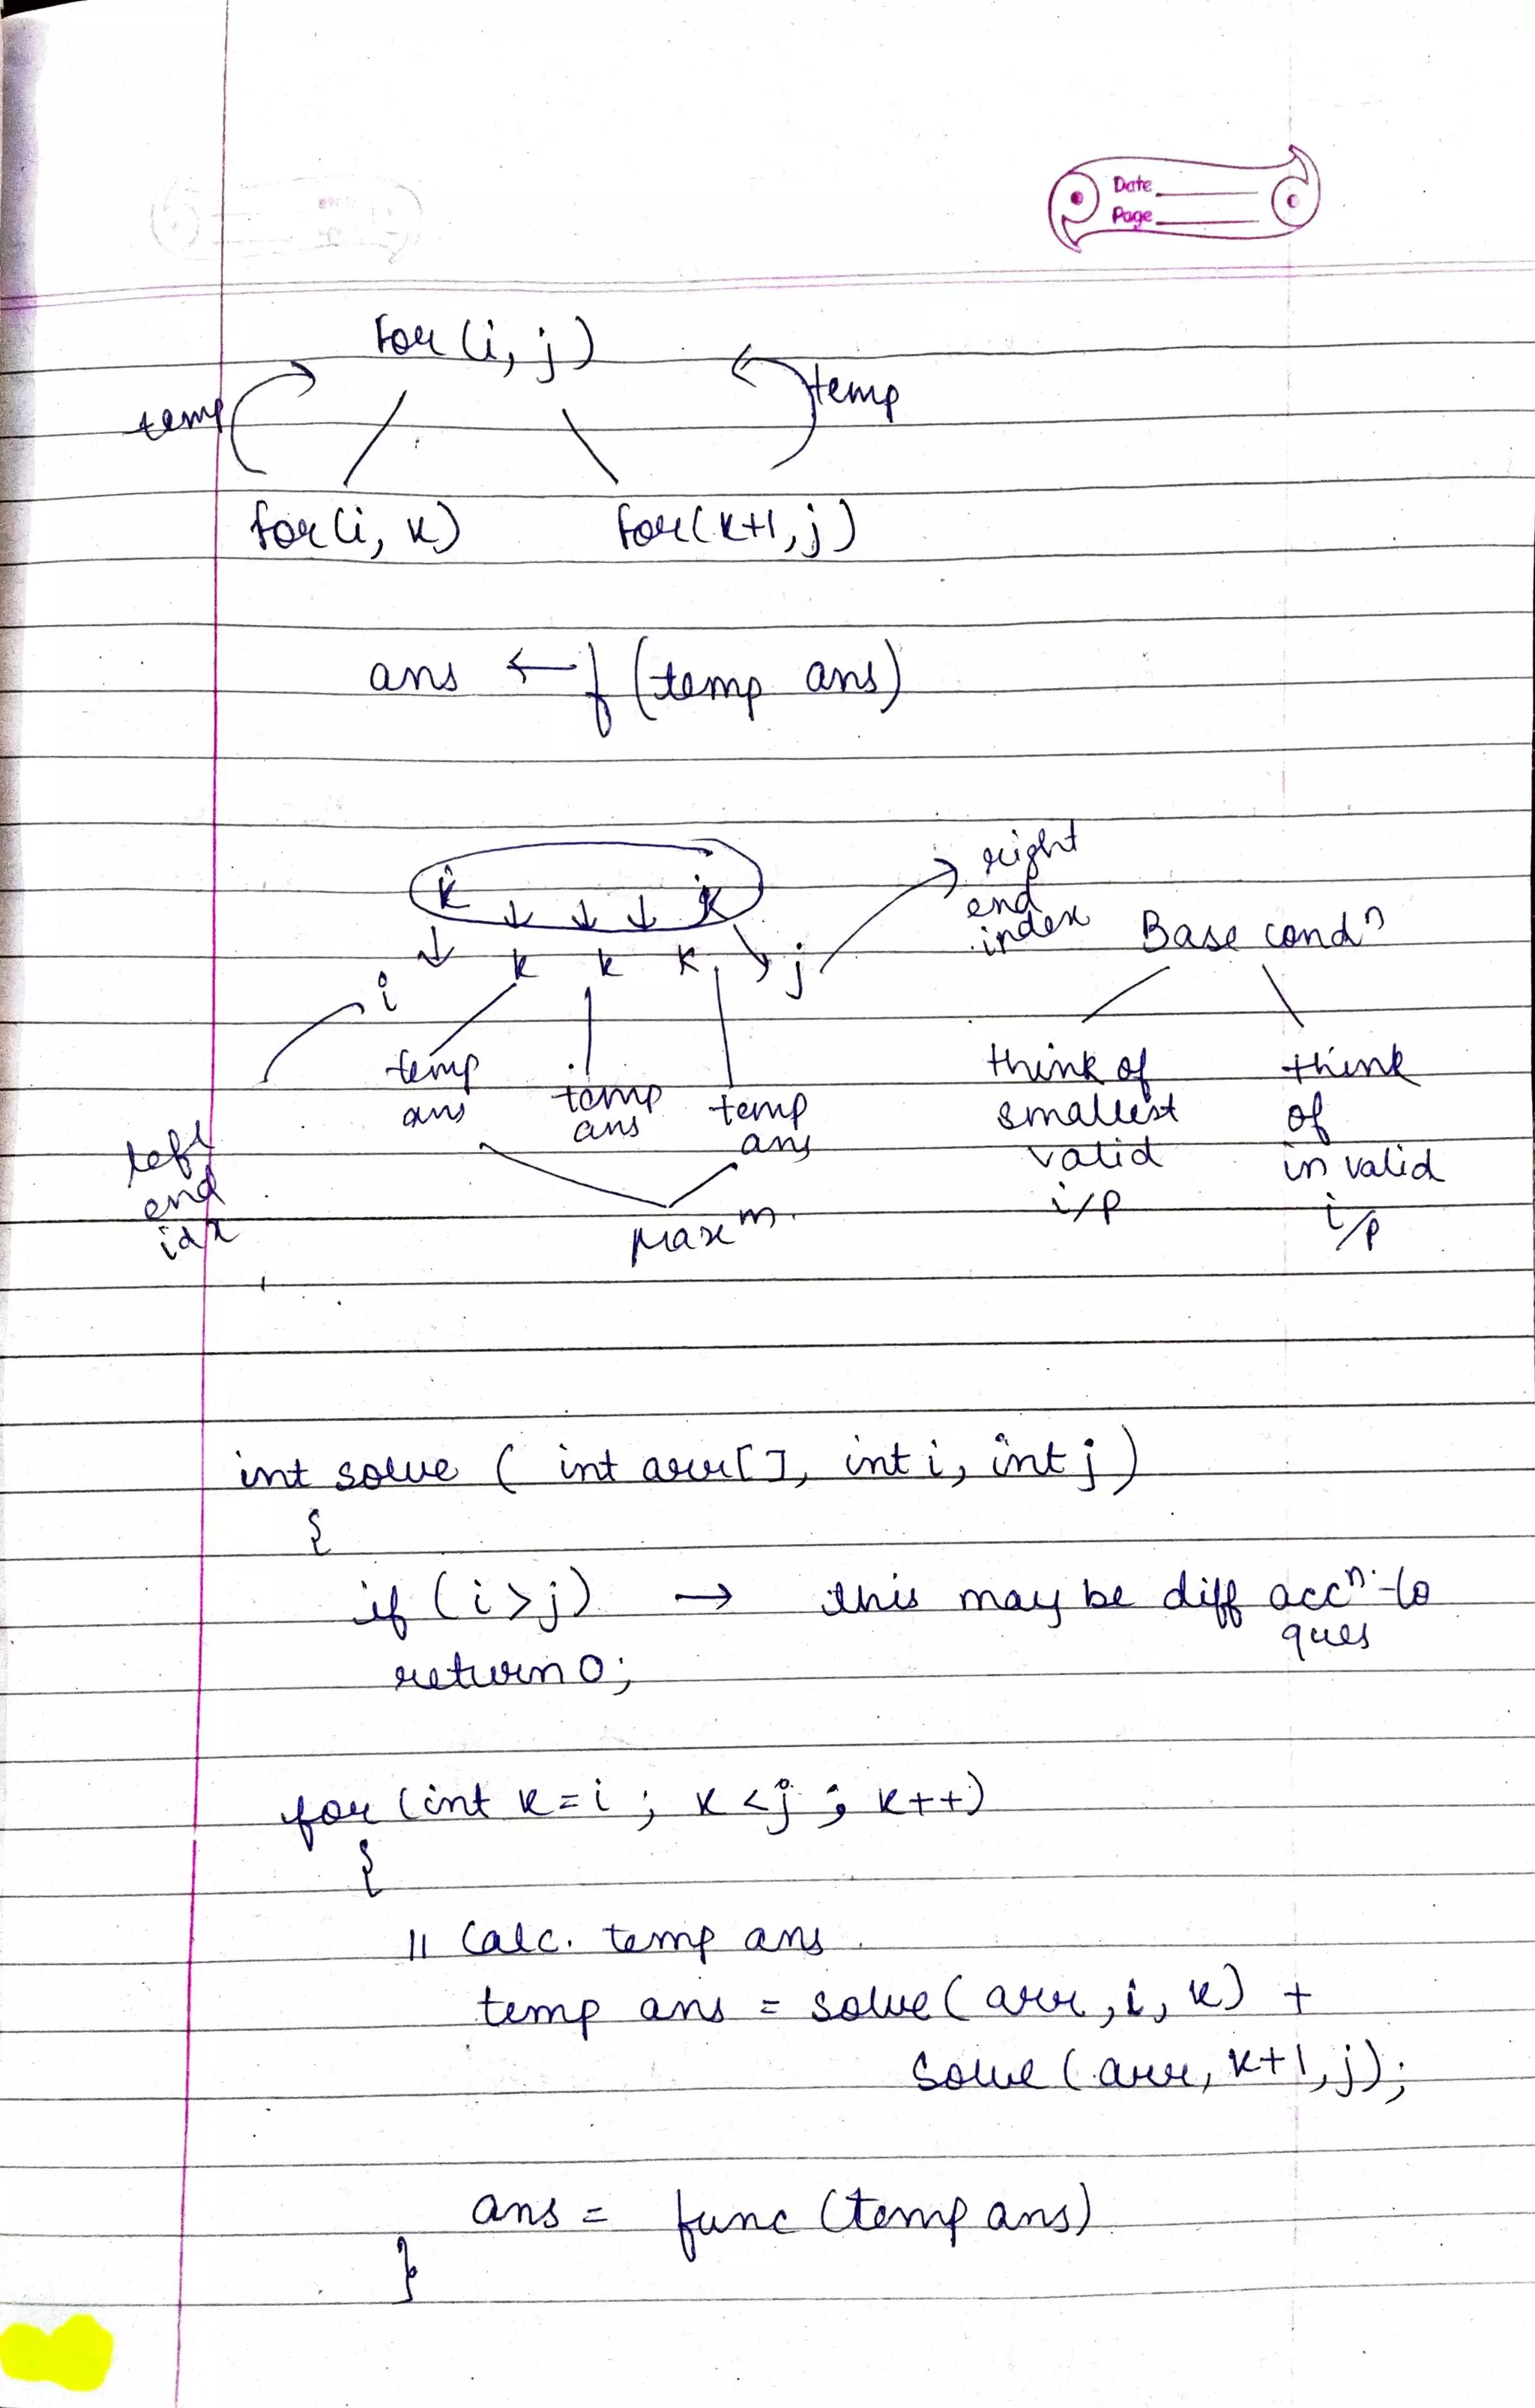 Date
Page
for (i, j)
temp
temp
for (i, k)
for (k+1, j)
ans ← f (temp ans)
k k
k k k
i
j
right
end
index
left
end
idx
temp
ans
temp
ans
temp
ans
Max m.
Base cond n
think of
smallest
valid
i/p
think
of
invalid
i/p
int solve ( int arr[ ], int i, int j )
{
if (i>j) → this may be diff acc n. to
ques
return 0;
for (int k=i ; k<j ; k++)
{
// Calc. temp ans
temp ans = solve( arr, i, k) +
solve (arr, k+1, j);
ans = func (temp ans)
}